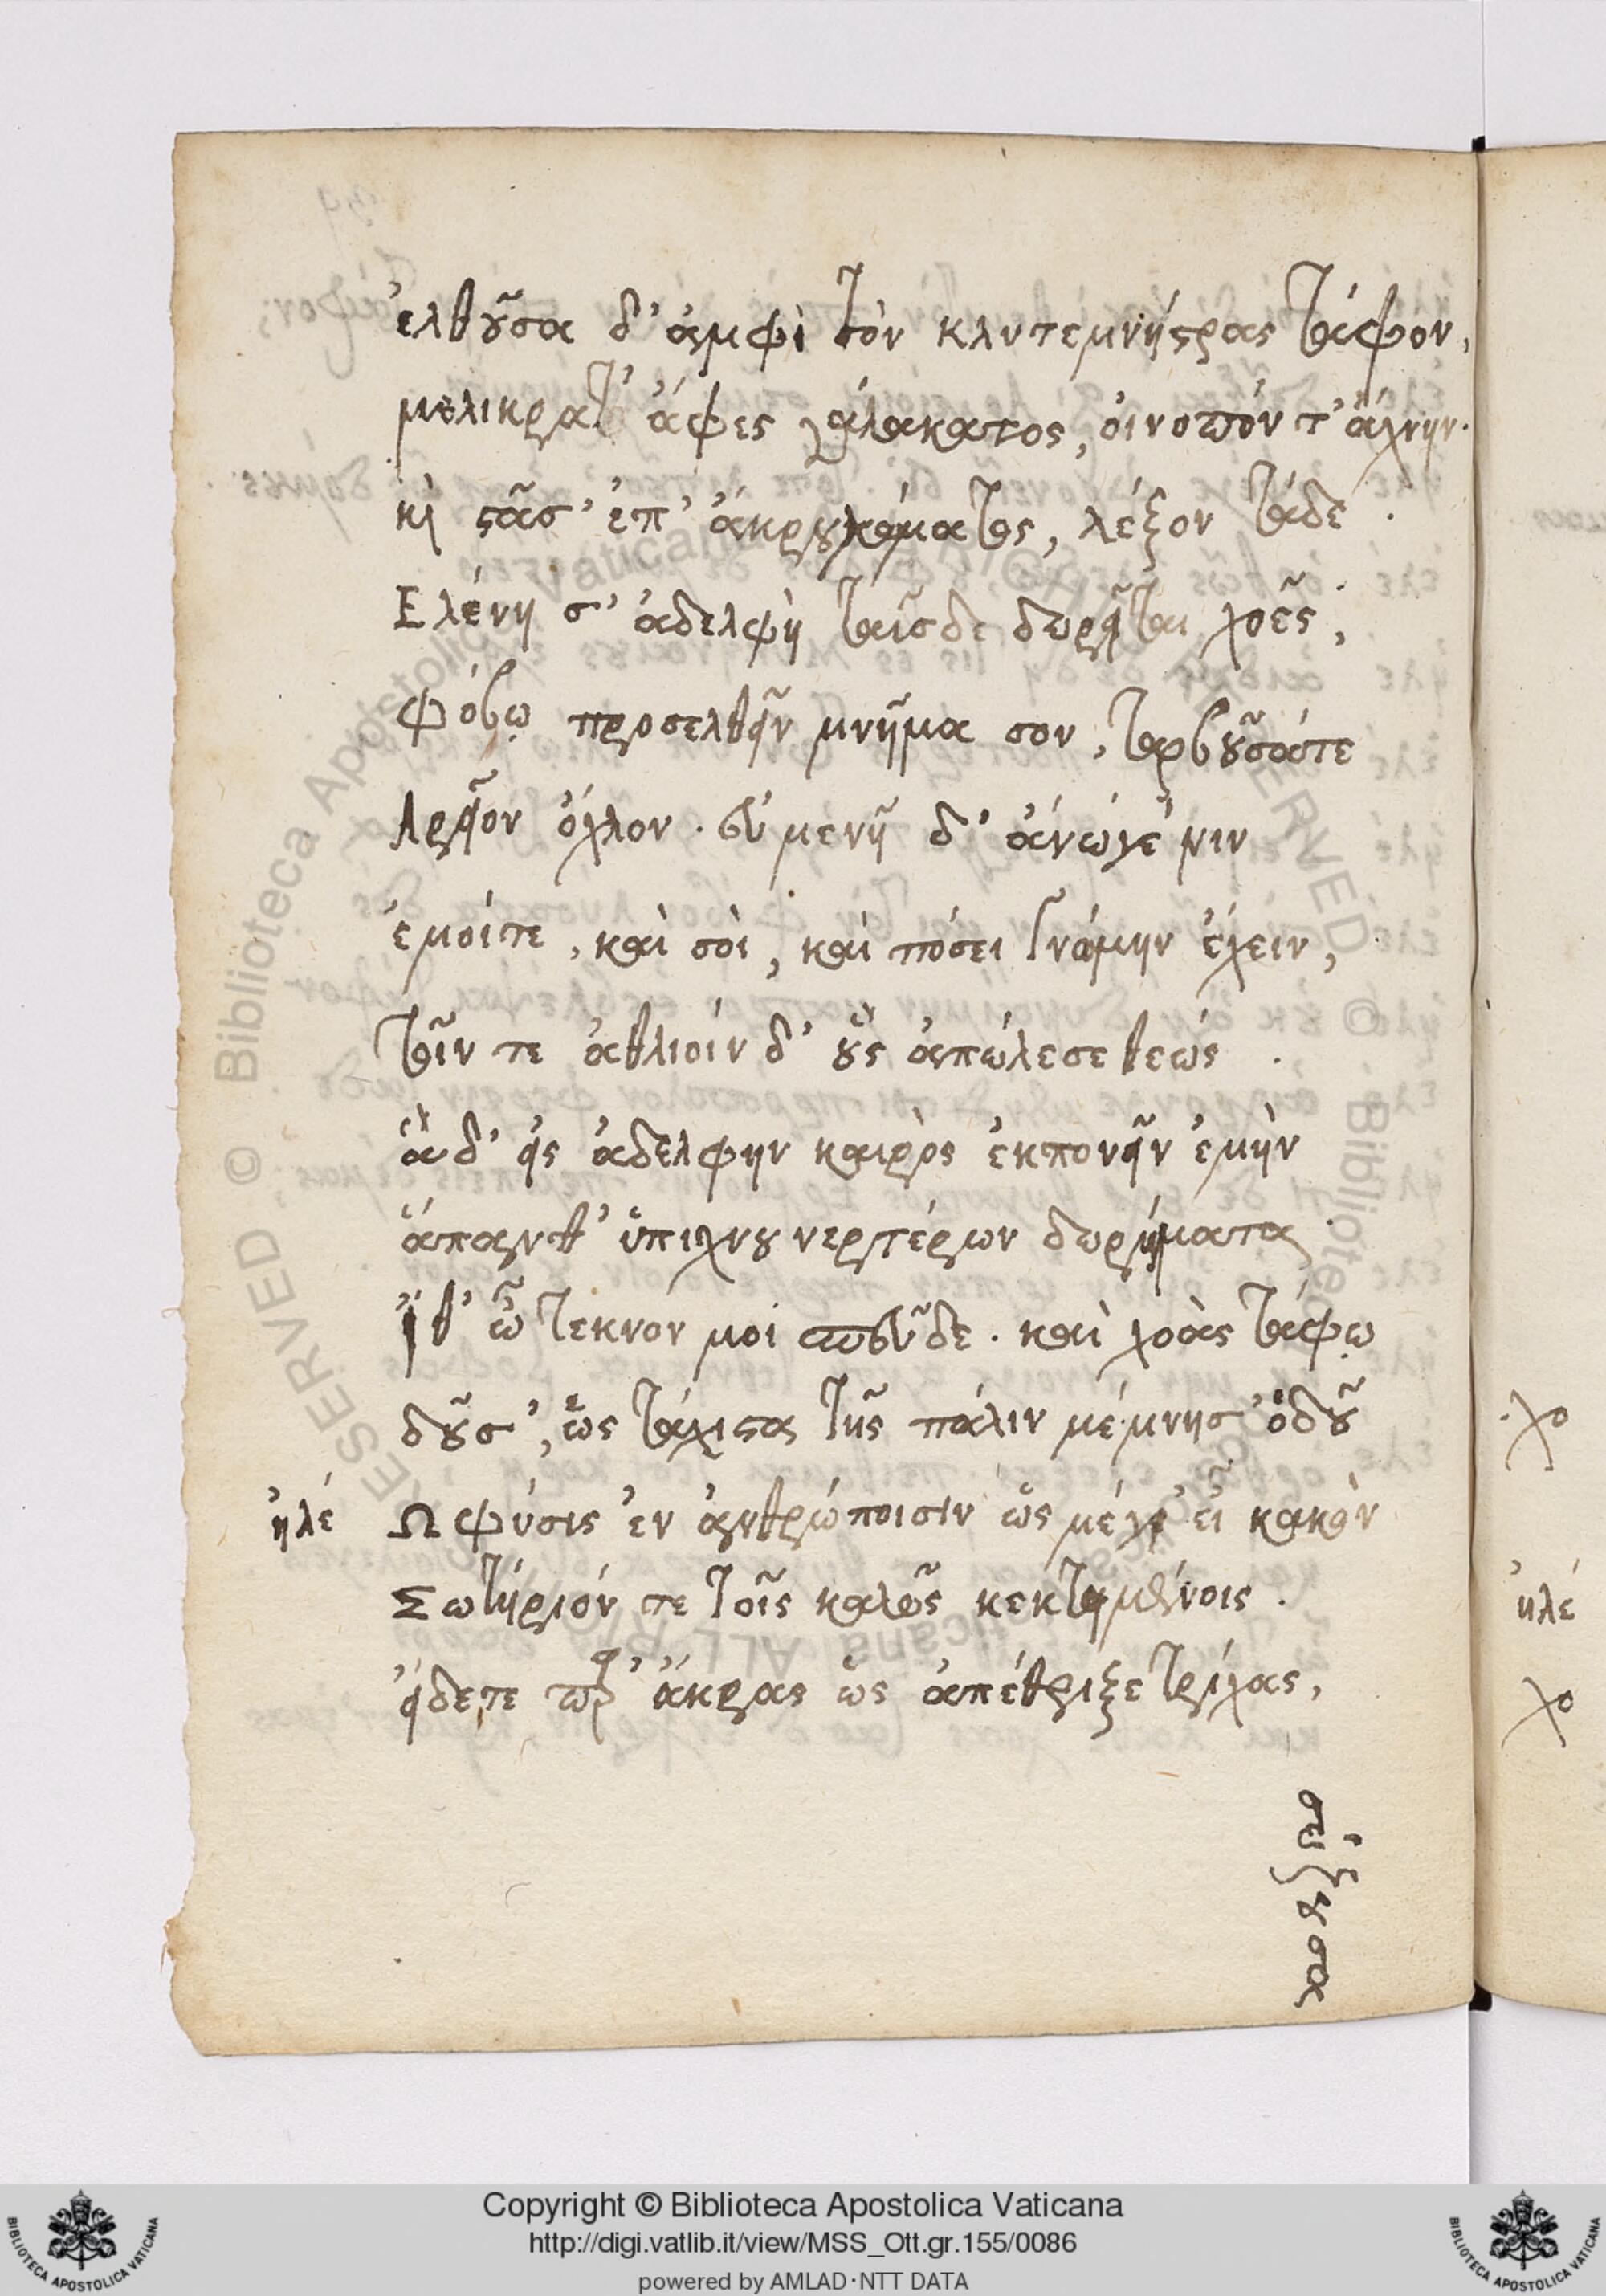 ἐλθοῦσα δ' ἀμφὶ τὸν κλυτεμνήστρας τάφον,
μελίκρατ' ἄφες γάλακατος, οἰνοπόν τ' ἄχνην.
κὶ στᾶσ' ἐπ' ἄκρου χώματος, λέξον τάδε.
Ελένη σ' ἀδελφὴ ταῖσδε δωρεῖται χοαῖς,
φόβω προσελθεῖν μνῆμα σον, ταρβοῦσάτε
Αργεῖον ὄχλον. εὐμενῆ δ' ἀνώγε νιν
ἐμοίτε, καὶ σὸι, καὶ πόσει γνώμην ἔχειν,
τοῖν τε ἀθλιοίν δ' οὓς ἀπώλεσε θεώς.
ἃ δ' εἰς ἀδελφην καιρὸς ἐκπονεῖν ἐμὴν
ἅπανθ' ὑπιχνου νερτέρων δωρήματα.
ἴθ' ὦ τεκνον μοι σπεῦδε. καὶ χοὰς τάφω
δοῦσ', ὡς τάχιστα τῆς πάλιν μέμνησ' ὁδοῦ
ἠλέ Ω φύσις ἐν ἀνθρώποισιν ὡς μέγ' εἶ κακὸν
Σωτήριόν τε τοῖς καλῶς κεκτημένοις.
εἴδετε παρ' ἄκρας ὡς ἀπέθριξε τρίχας,
σώζουσα
χο
ἠλέ
χο
Copyright © Biblioteca Apostolica Vaticana
http://digi.vatlib.it/view/MSS_Ott.gr.155/0086
powered by AMLAD·NTT DATA